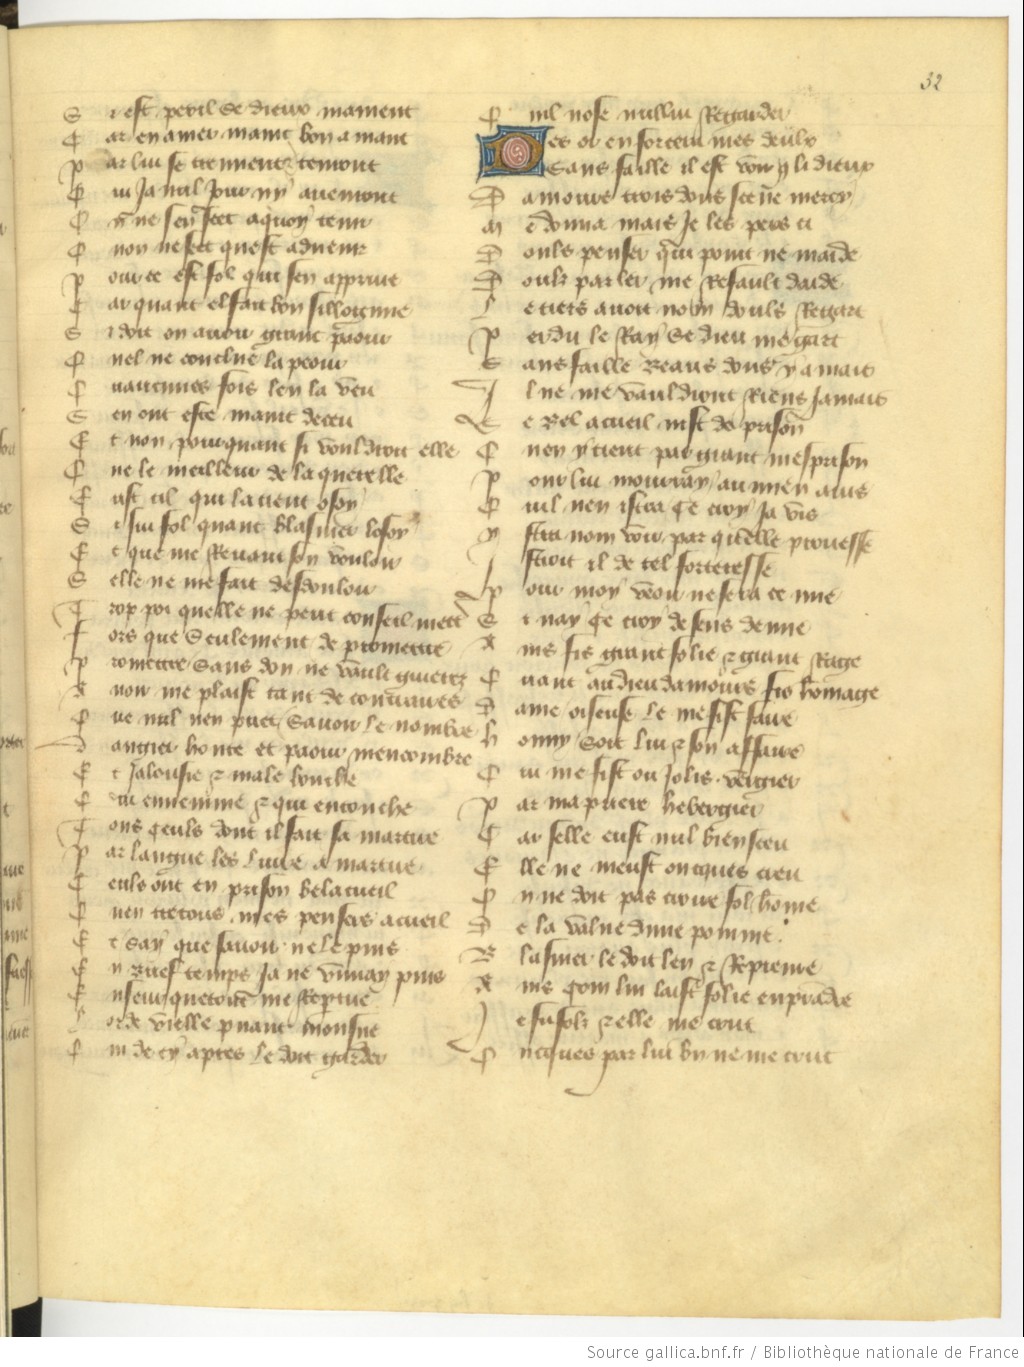 32
S i est peril se dieux mament
C ar en amer maint bon amant
P ar lui se tiennent & temont
Q ui ja nul jour ny avenront
O n ne scet a quoy tenir
O non ne scet quest advenir
P our ce est fol qui sen apprime
C ar quant el fait bon sillogime
S i doit on avoir grant paour
Q uel ne conclue la peour
Q uaucunes fois len la veu
S en ont este maint deceu
E t non pourquant si vouldroit elle
Q ue le meilleur de la querelle
E ust cil qui la tient o soy
S i sui fol quant blasmer losoy
E t que me vault son vouloir
S elle ne me fait desdouloir
T rop poi quelle ne peut conseil mettre
F ors que seulement de promettre
P romettre sans don ne vault gueres
A voir me plaist tant de contraires
Q ue nul nen puet savoir le nombre
D angier honte et paour mencombre
E t jalousie & male bouche
Q ui envenime & qui entouche
T ous ceulx dont il fait sa martire
P ar langue les livre a martire
C eulx ont en prison belacueil
Q uen trestous mes pensers acueil
E t say que savoir ne le puis
E n brief temps ja ne vivray puis
E nseurquetout me
L orde vielle puant mousue
Q ui de cy apres le doit garder
Q uil nose nullui regarder
D es or enforcent mes deulx
Sans faille il est voir q li dieux
D amours trois dons sce ne mercy
M e donna mais je les pers ci
D oulx penser qui point ne maide
D oulx parler me refault daide
L e tiers avoit nom doulx regart
P erdu le ray se dieu me gart
S ans faille beaux dons y a mais
I l ne me vauldront riens jamais
S e bel acueil nist de prison
Q uen y tient par grant mesprison
P our lui mourray au mien avis
Q uil nen istra ce croy ja vis
Y stra non voir par quelle prouesse
I stroit il de tel forteresse
P our moy voir ne sera ce mie
S i nay ce croy de sens demie
A ins fis grant folie & grant rage
Q uant au dieu damours fis hommage
D ame oiseuse le me fist faire
H onny soit lui & son affaire
Q ui me fist ou jolis vergier
P ar ma priere hebergier
C ar selle eust nul bien sceu
E lle ne meust oncques creu
O n ne doit pas croire fol homme
D e la value dune pomme
B lasmer le doit len & reprendre
A ins com lui laist folie emprandre
J e fu folz & elle me crut
O ncques par lui bn ne me crut